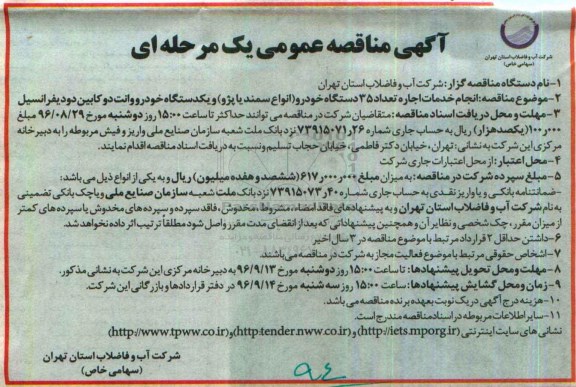 شرکت آب و فاضلاب استان تهران
(سهامی خاص)
آگهی مناقصه عمومی یک مرحله ای
۱-نام دستگاه مناقصه گزار: شرکت آب و فاضلاب استان تهران
۲-موضوع مناقصه: انجام خدمات اجاره تعداد ۳۵ دستگاه خودرو (انواع سمند یا پژو) و یکدستگاه خودرو وانت دو کابین دودیفرانسیل
۳-مهلت و محل دریافت اسناد مناقصه: متقاضیان شرکت در مناقصه می توانند حداکثر تا ساعت ۱۵:۰۰ روز دوشنبه مورخ ۹۶/۰۸/۲۹ مبلغ
۱۰۰ر۰۰۰ (یکصدهزار) ریال به حساب جاری شماره ۷۳۹۱۵۰۷۱ر۲۶ نزد بانک ملت شعبه سازمان صنایع ملی واریز و فیش مربوطه را به دبیرخانه
مرکزی این شرکت به نشانی: تهران، خیابان دکتر فاطمی، خیابان حجاب تسلیم و نسبت به دریافت اسناد مناقصه اقدام نمایند.
۴-محل اعتبار: از محل اعتبارات جاری شرکت
۵-مبلغ سپرده شرکت در مناقصه: به میزان مبلغ ۶۱۷ر۰۰۰ر۰۰۰ (ششصد و هفده میلیون) ریال و به یکی از انواع ذیل می باشد:
-ضمانتنامه بانکی و یا واریز نقدی به حساب جاری شماره ۷۳۹۱۵۰۷۳ر۴۰ نزد بانک ملت شعبه سازمان صنایع ملی و یا چک بانکی تضمینی
به نام شرکت آب و فاضلاب استان تهران و به پیشنهادهای فاقد امضاء، مشروط، مخدوش، فاقد سپرده و سپرده های مخدوش یا سپرده های کمتر
از میزان مقرر، چک شخصی و نظایر آن و همچنین پیشنهاداتی که بعد از انقضای مدت مقرر واصل شود مطلقاً ترتیب اثر داده نخواهد شد.
۶-داشتن حداقل ۲ قرارداد مرتبط با موضوع مناقصه در ۳ سال اخیر
۷-اشخاص حقوقی مرتبط با موضوع فعالیت مجاز به شرکت در مناقصه می باشند.
۸-مهلت و محل تحویل پیشنهادها: تا ساعت ۱۵:۰۰ روز دوشنبه مورخ ۹۶/۹/۱۳ به دبیرخانه مرکزی این شرکت به نشانی مذکور.
۹-زمان و محل گشایش پیشنهادها: ساعت ۱۵:۰۰ روز سه شنبه مورخ ۹۶/۹/۱۴ در دفتر قراردادها و بازرگانی این شرکت.
۱۰-هزینه درج آگهی در یک نوبت بعهده برنده مناقصه می باشد.
۱۱-سایر اطلاعات مربوطه در اسناد مناقصه مندرج است.
نشانی های سایت اینترنتی (http://iets.mporg.ir) و (http:tender.nww.co.ir) و (http://www.tpww.co.ir)
شرکت آب و فاضلاب استان تهران
(سهامی خاص)